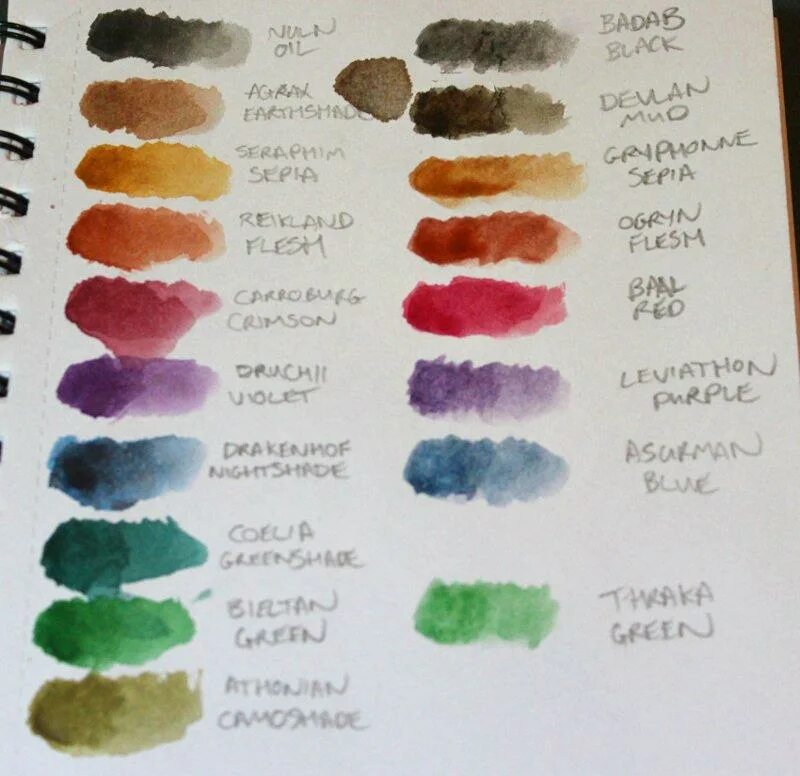 NULN
OIL
BADAB
BLACK
AGRAX
EARTHSHADE
DEVLAN
MUD
SERAPHIM
SEPIA
GRYPHONNE
SEPIA
REIKLAND
FLESH
OGRYN
FLESH
CARROBURG
CRIMSON
BAAL
RED
DRUCHII
VIOLET
LEVIATHON
PURPLE
DRAKENHOF
NIGHTSHADE
ASURMAN
BLUE
COELIA
GREENSHADE
BIELTAN
GREEN
THRAKA
GREEN
ATHONIAN
CAMOSHADE